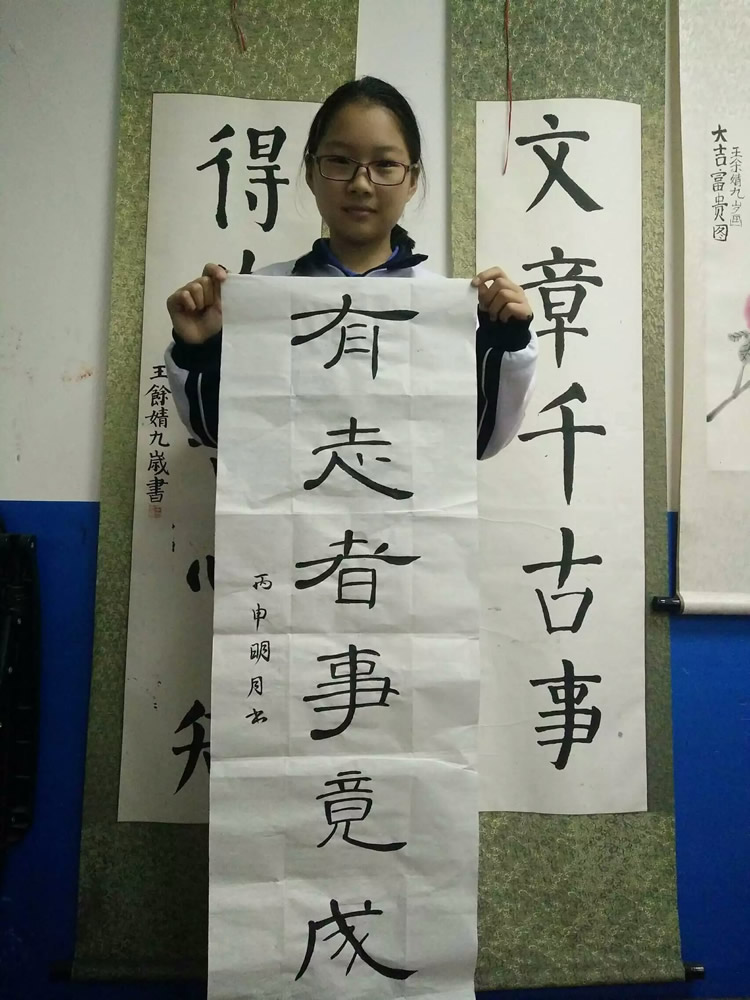 大吉富贵图
王余婧九岁画
文章千古事
得
王餘婧九歲書
有志者事竟成
丙申明月书